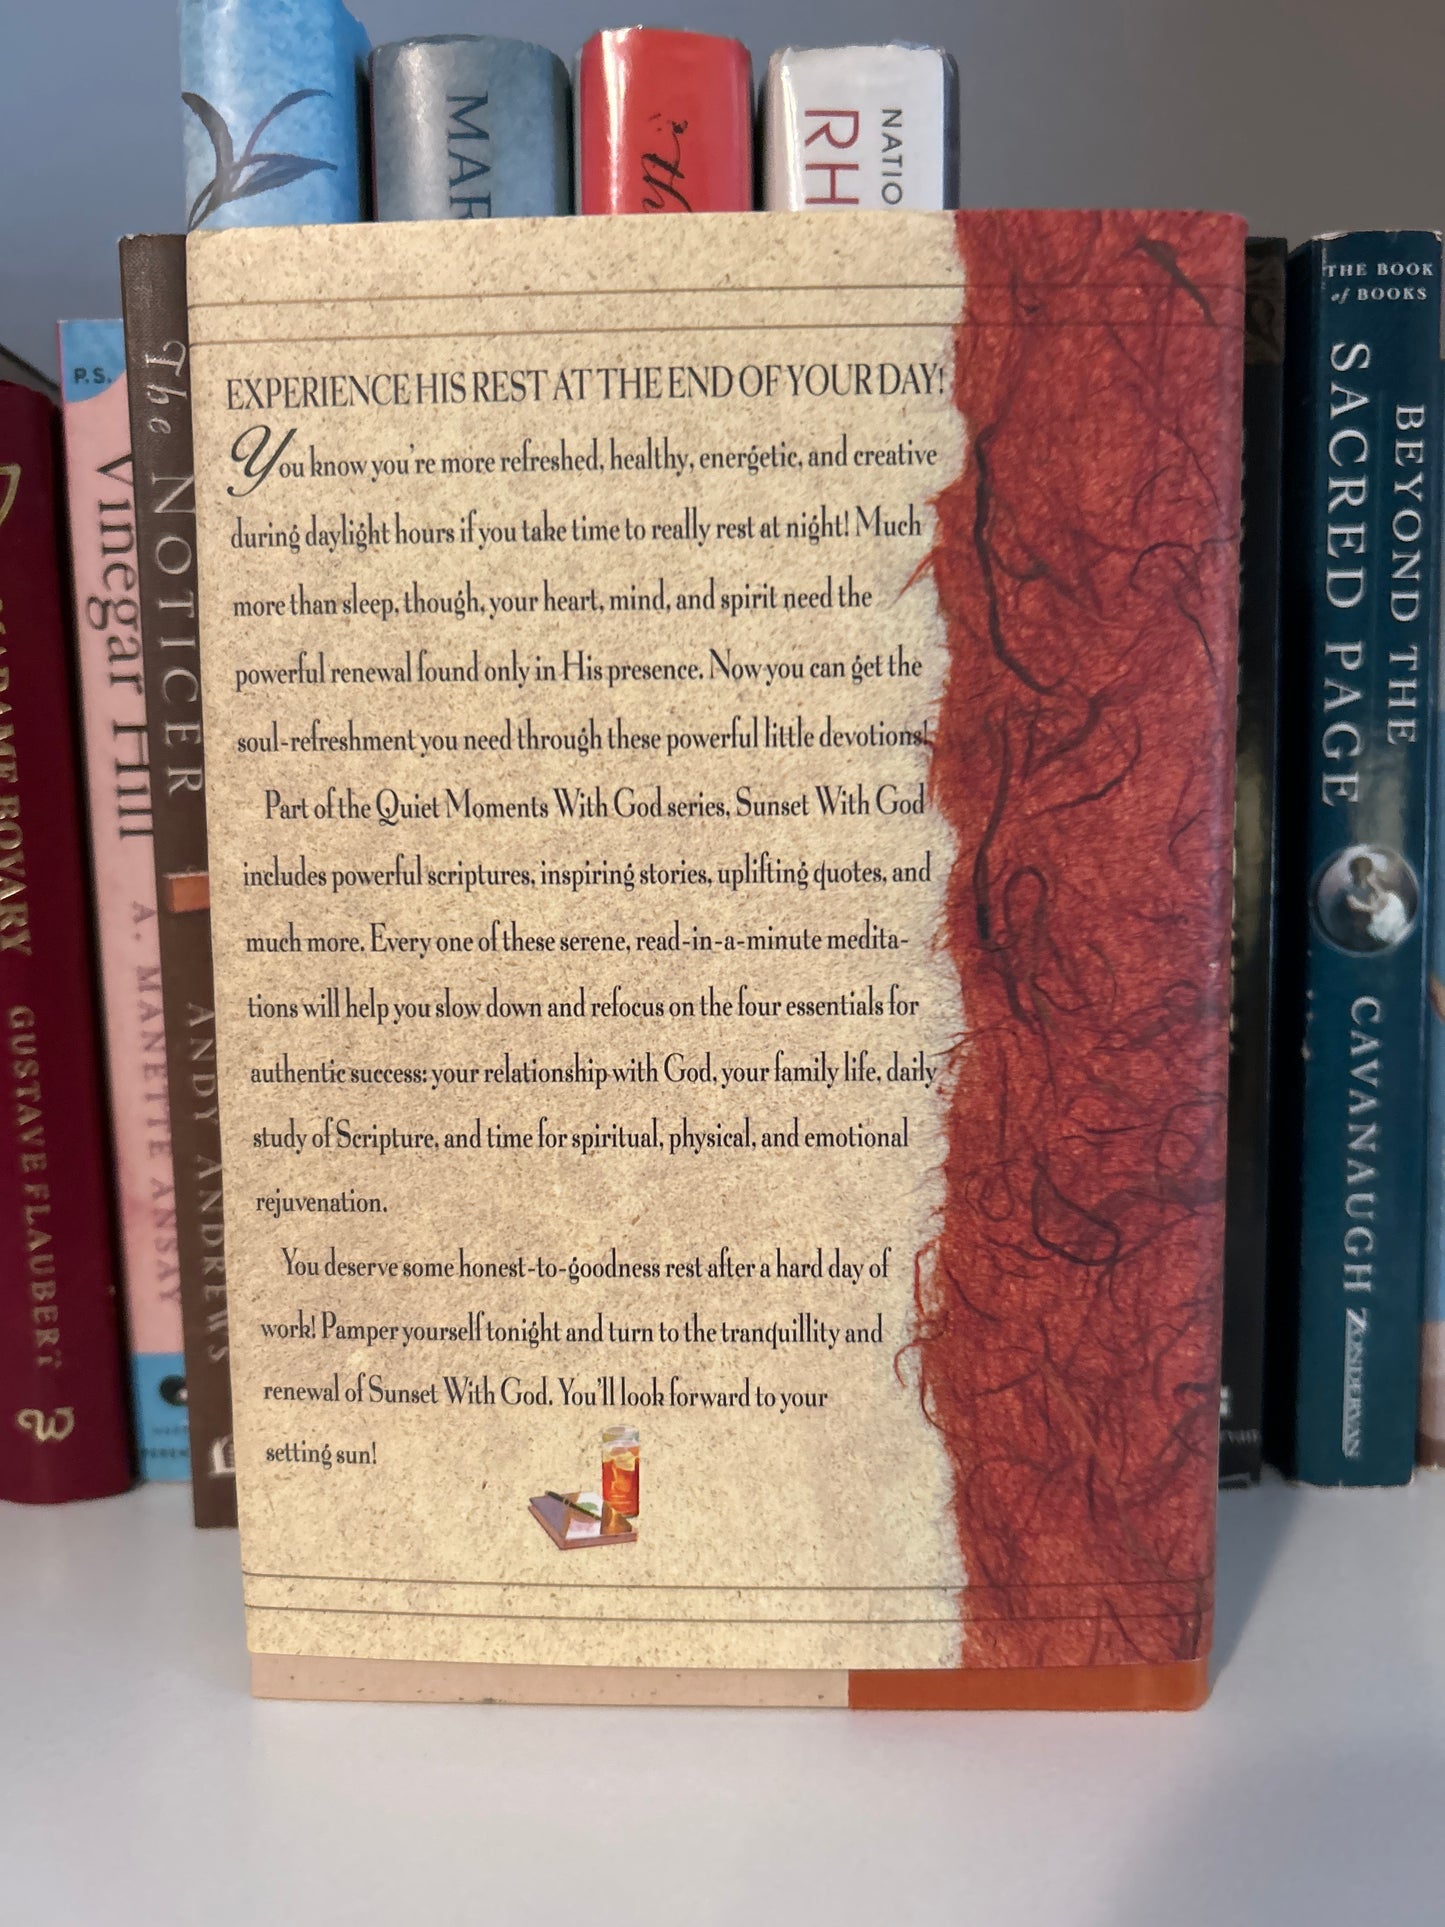 MAR
th
NATIO
RH
EXPERIENCE HIS REST AT THE END OF YOUR DAY!
You know you're more refreshed, healthy, energetic, and creative
during daylight hours if you take time to really rest at night! Much
more than sleep, though, your heart, mind, and spirit need the
powerful renewal found only in His presence. Now you can get the
soul-refreshment you need through these powerful little devotions!
Part of the Quiet Moments With God series, Sunset With God
includes powerful scriptures, inspiring stories, uplifting quotes, and
much more. Every one of these serene, read-in-a-minute medita-
tions will help you slow down and refocus on the four essentials for
authentic success: your relationship with God, your family life, daily
study of Scripture, and time for spiritual, physical, and emotional
rejuvenation.
You deserve some honest-to-goodness rest after a hard day of
work! Pamper yourself tonight and turn to the tranquillity and
renewal of Sunset With God. You'll look forward to your
setting sun!
GUSTAVE FLAUBERT
P.S.
Vinegar Hill
A. MANETTE ANSAY
The NOTICER
ANDY ANDREWS
THE BOOK
of BOOKS
BEYOND THE
SACRED PAGE
CAVANAUGH
ZONDERVAN